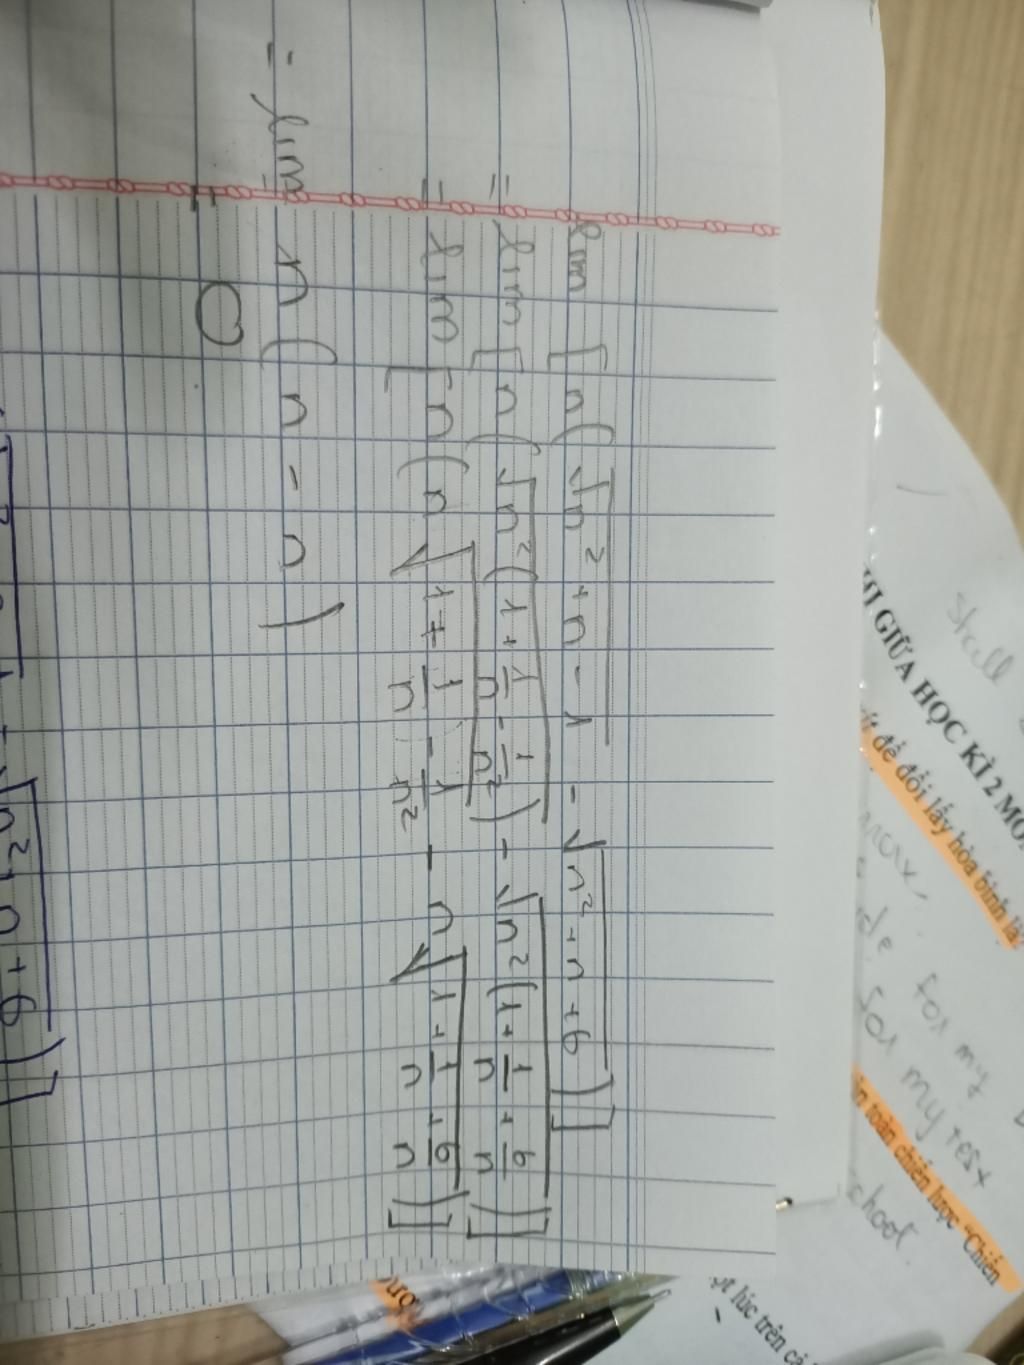 lim [ n ( √(n² + n - 1) - √(n² + n + 6) ) ]
= lim [ n ( √(n² (1 + 1/n - 1/n²)) - √(n² (1 + 1/n + 6/n)) ) ]
= lim [ n ( n √(1 + 1/n - 1/n²) - n √(1 + 1/n + 6/n) ) ]
= lim n ( n - n )
= 0
GIỮA HỌC KÌ 2
để đổi lấy hòa bình là
for my
for my
school
toàn chiến lược "Chiến
lúc trên cả